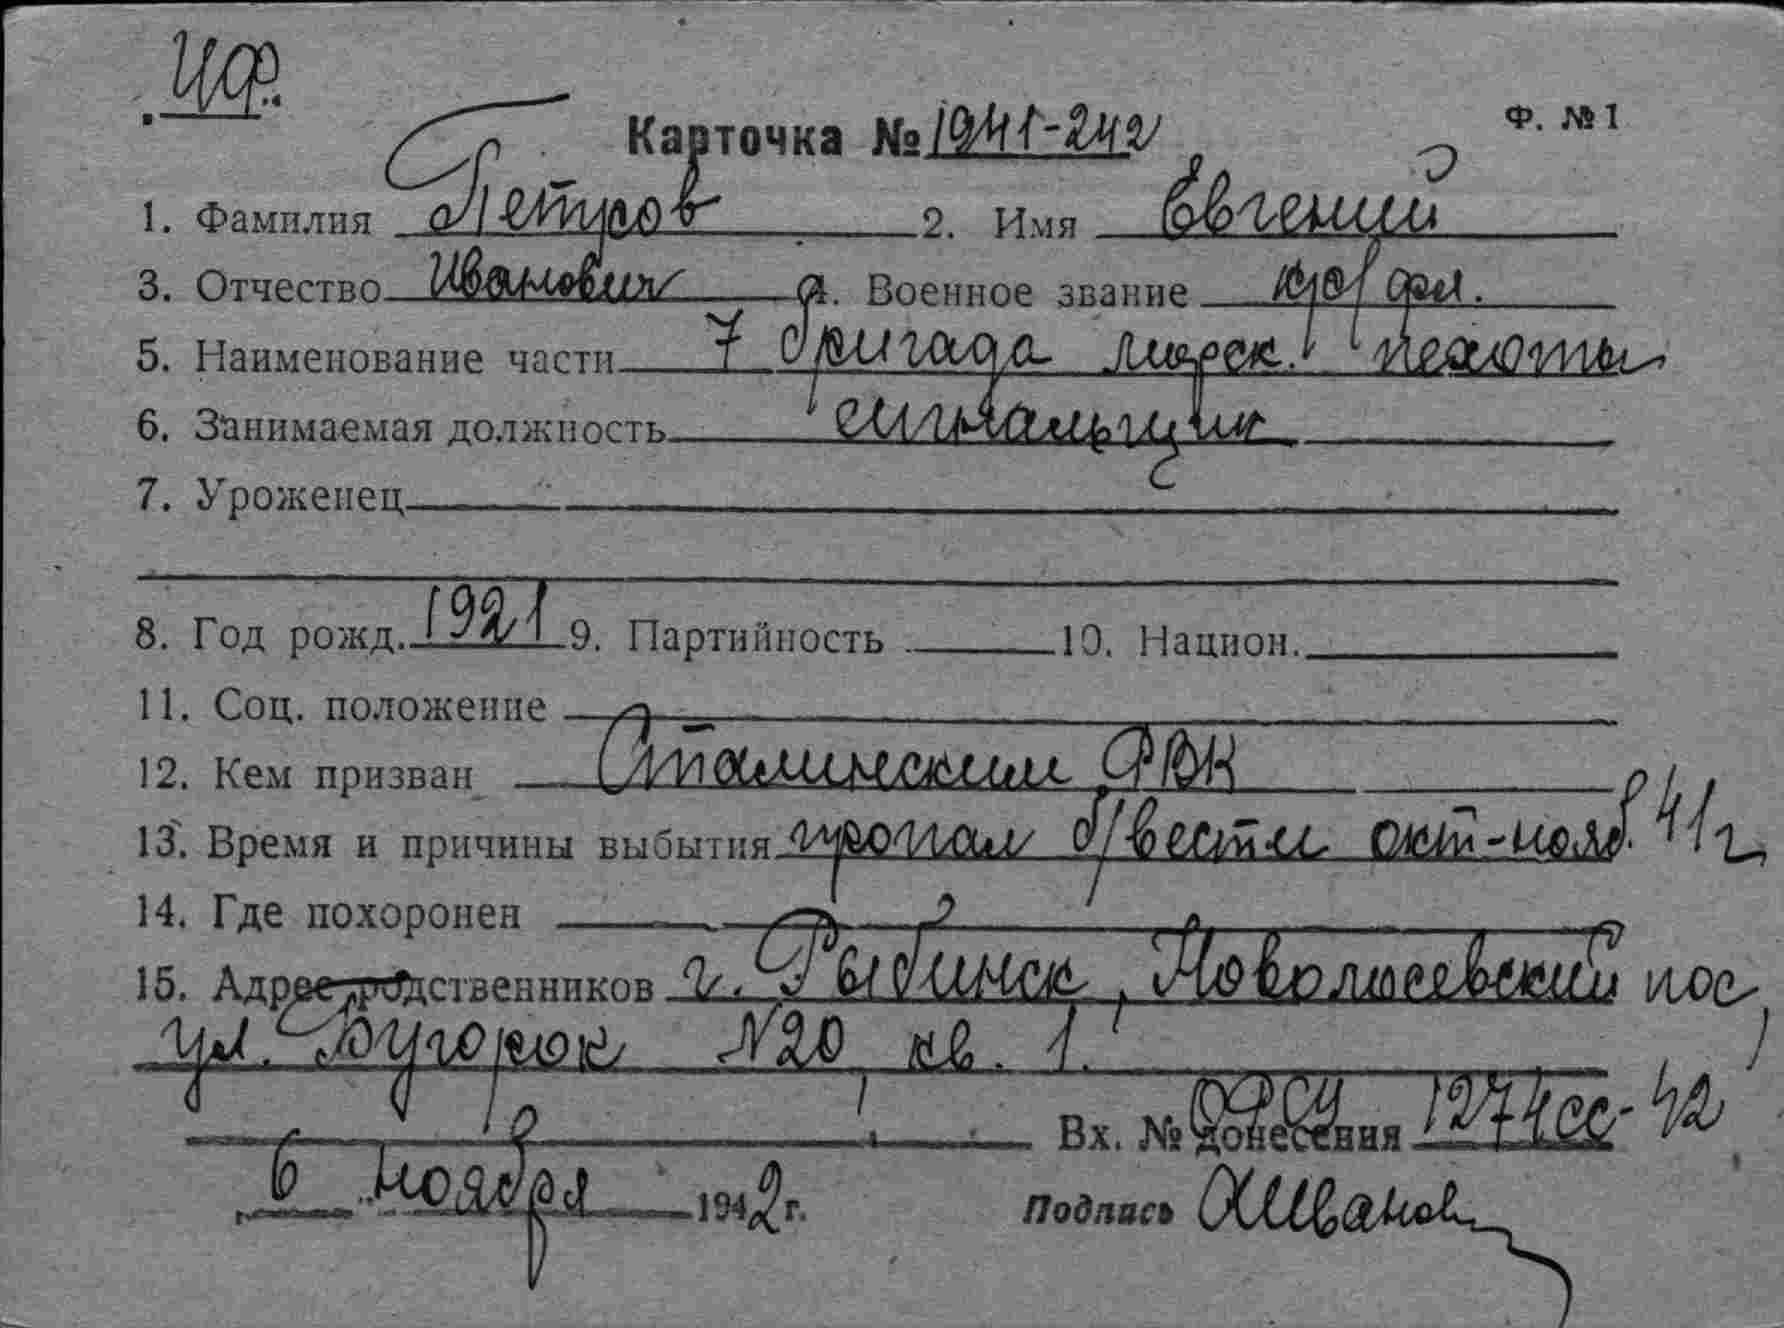 ИФ.
Карточка № 1941-242
Ф. № 1
1. Фамилия Петров 2. Имя Евгений
3. Отчество Иванович 4. Военное звание кр/фл.
5. Наименование части 7 бригада морск. пехоты
6. Занимаемая должность сигнальщик
7. Уроженец
8. Год рожд. 1921 9. Партийность 10. Национ.
11. Соц. положение
12. Кем призван Сталинским РВК
13. Время и причины выбытия пропал б/вести окт-нояб. 41 г
14. Где похоронен
15. Адрес родственников г. Рыбинск, пос,
ул. Бугорок N20, кв. 1.
Вх. № донесения 1274сс-42
6 ноября 1942 г. Подпись